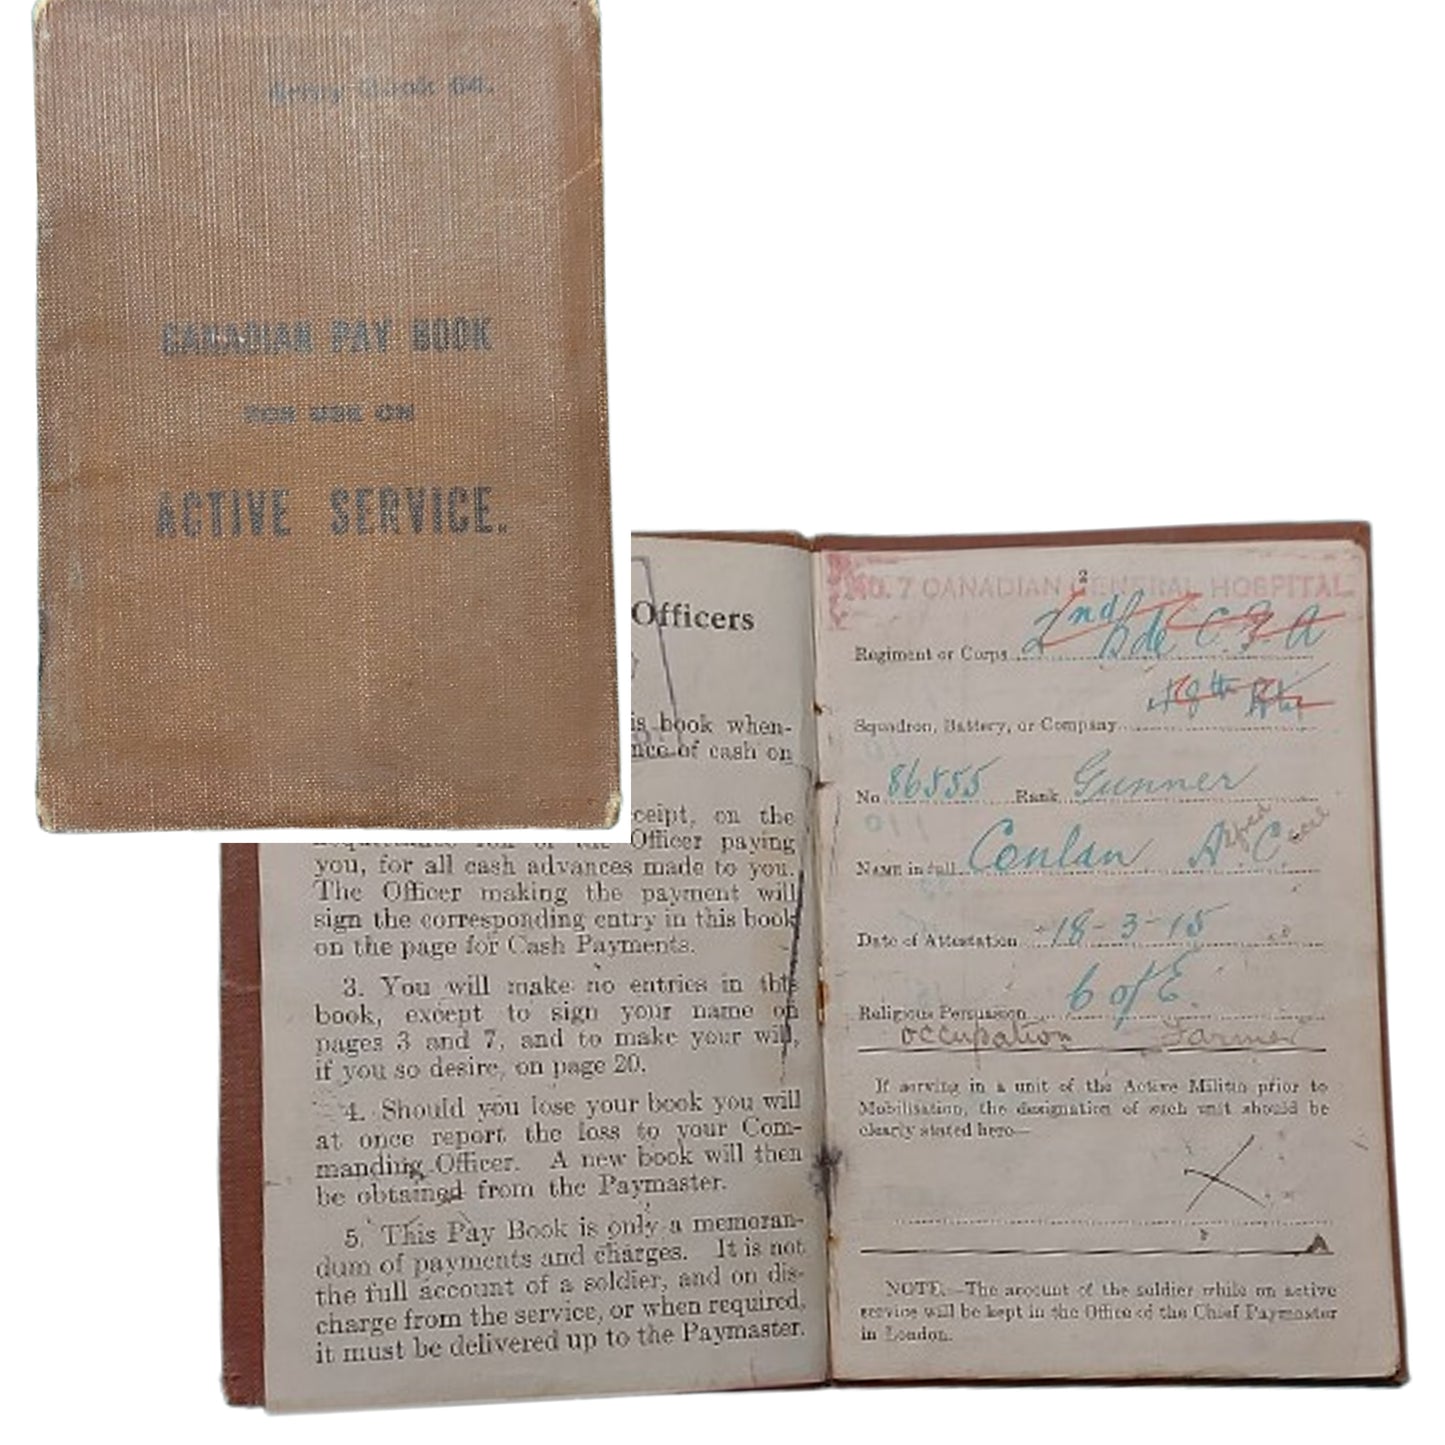 Army Book 64.
CANADIAN PAY BOOK
FOR USE ON
ACTIVE SERVICE.
Officers
is book when-
nce of cash on
ceipt, on the
Officer paying
you, for all cash advances made to you.
The Officer making the payment will
sign the corresponding entry in this book
on the page for Cash Payments.
3. You will make no entries in this
book, except to sign your name on
pages 3 and 7, and to make your will,
if you so desire, on page 20.
4. Should you lose your book you will
at once report the loss to your Com-
manding Officer. A new book will then
be obtained from the Paymaster.
5. This Pay Book is only a memoran-
dum of payments and charges. It is not
the full account of a soldier, and on dis-
charge from the service, or when required,
it must be delivered up to the Paymaster.
2
NO. 7 CANADIAN GENERAL HOSPITAL
Regiment or Corps 2nd Bde C.F.A
Squadron, Battery, or Company
No 86555 Rank Gunner
NAME in full Conlan A. C.
Alfred Cecil
Date of Attestation 18-3-15
Religious Persuasion C of E.
occupation Farmer
If serving in a unit of the Active Militia prior to
Mobilisation, the designation of such unit should be
clearly stated here—
NOTE.—The account of the soldier while on active
service will be kept in the Office of the Chief Paymaster
in London.